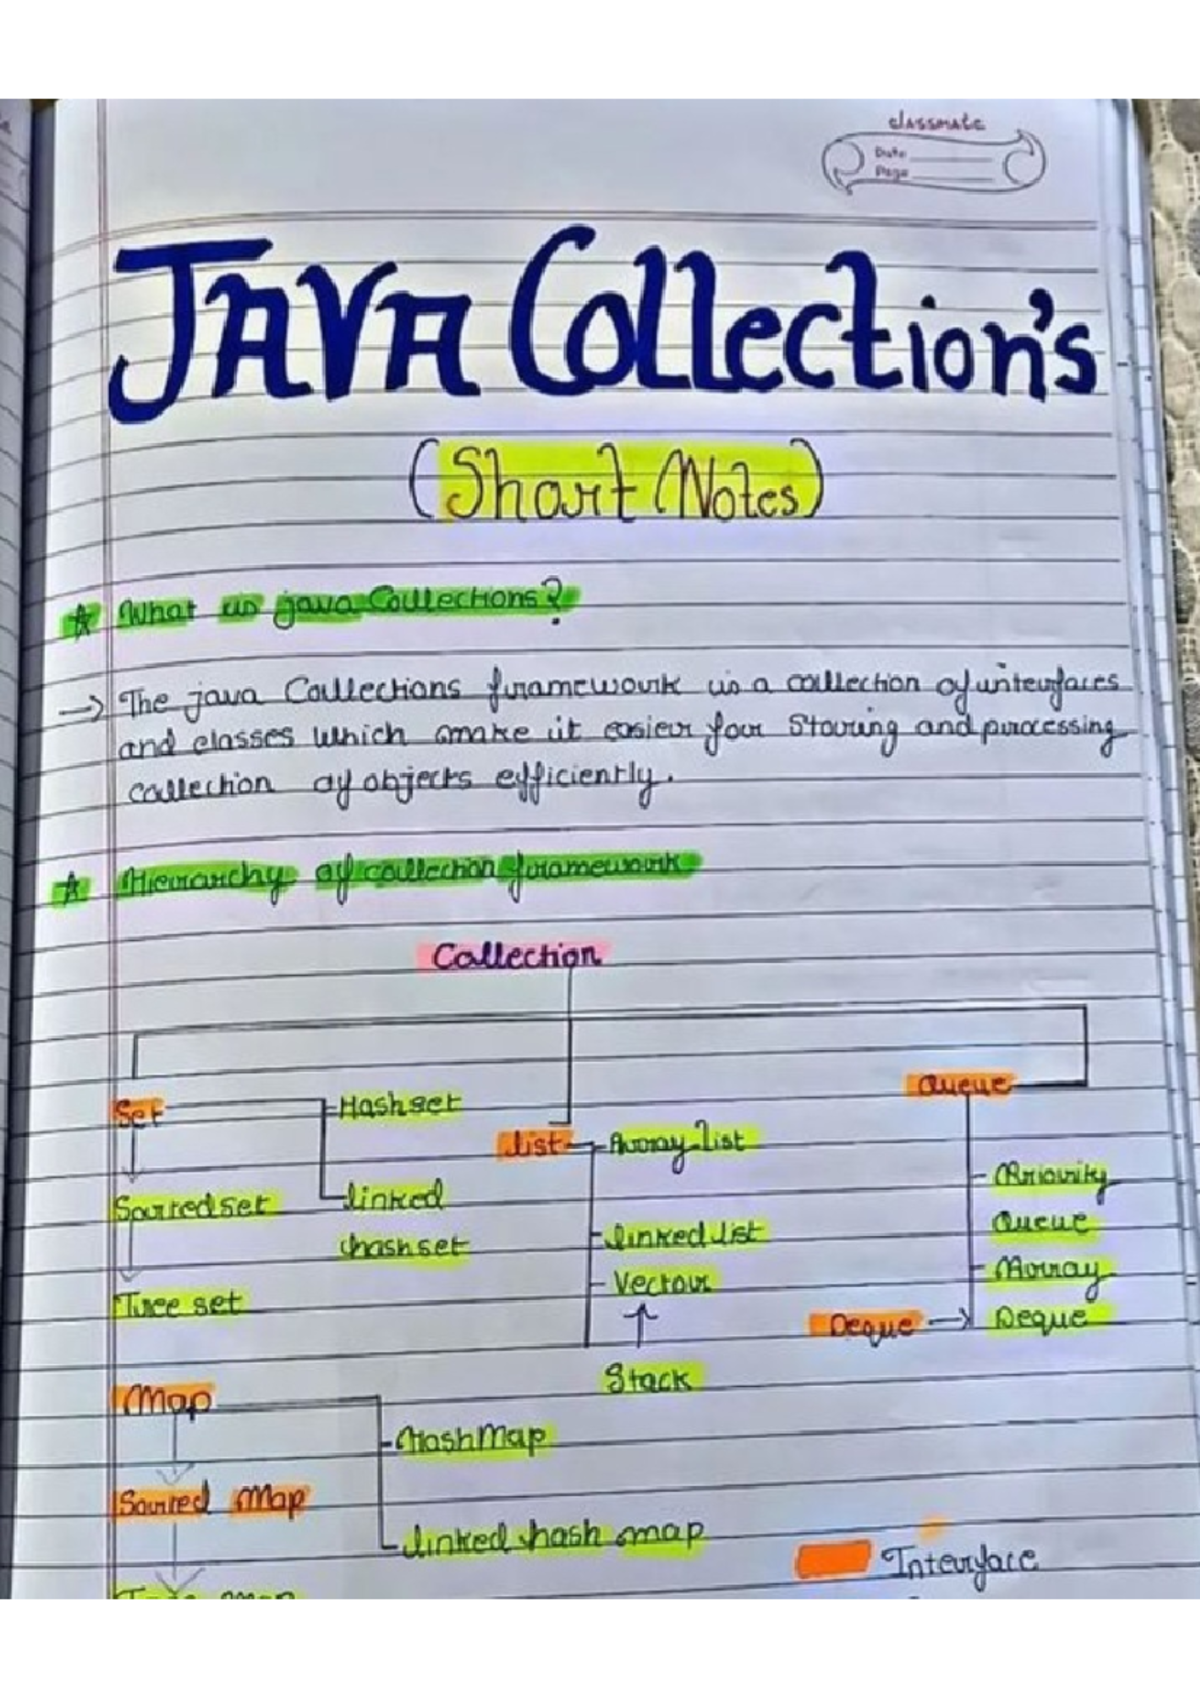 classmate
Date
Page
JAVA Collection's
(Short Notes)
☆ What is java Collections?
→ The java Collections framework is a collection of interfaces
and classes which make it easier for storing and processing
collection of objects efficiently.
☆ Hierarchy of collection framework
Collection
Queue
Set
Hashset
list
Array list
Priority
Sorted set
linked
Queue
hashset
linked list
Array
Vector
Tree set
Deque
Deque
Stack
Map
HashMap
Sorted Map
linked hash map
Interface